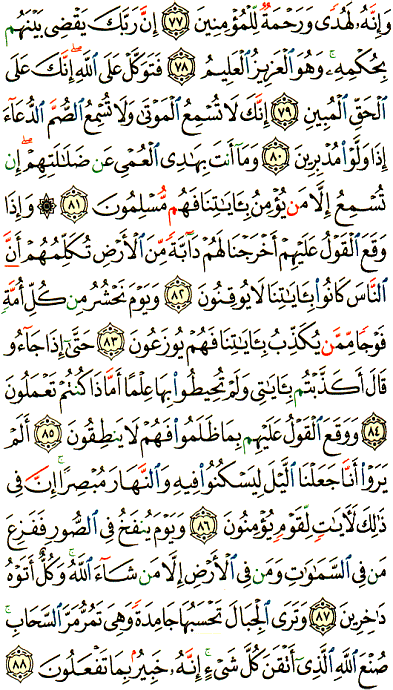 وَإِنَّهُۥ لَهُدًى وَرَحْمَةٌ لِّلْمُؤْمِنِينَ ٧٧ إِنَّ رَبَّكَ يَقْضِى بَيْنَهُم
بِحُكْمِهِۦ ۚ وَهُوَ ٱلْعَزِيزُ ٱلْعَلِيمُ ٧٨ فَتَوَكَّلْ عَلَى ٱللَّهِ ۖ إِنَّكَ عَلَى
ٱلْحَقِّ ٱلْمُبِينِ ٧٩ إِنَّكَ لَا تُسْمِعُ ٱلْمَوْتَىٰ وَلَا تُسْمِعُ ٱلصُّمَّ ٱلدُّعَآءَ
إِذَا وَلَّوْا۟ مُدْبِرِينَ ٨٠ وَمَآ أَنتَ بِهَٰدِى ٱلْعُمْىِ عَن ضَلَٰلَتِهِمْ ۖ إِن
تُسْمِعُ إِلَّا مَن يُؤْمِنُ بِـَٔايَٰتِنَا فَهُم مُّسْلِمُونَ ٨١ ۞ وَإِذَا
وَقَعَ ٱلْقَوْلُ عَلَيْهِمْ أَخْرَجْنَا لَهُمْ دَآبَّةً مِّنَ ٱلْأَرْضِ تُكَلِّمُهُمْ أَنَّ
ٱلنَّاسَ كَانُوا۟ بِـَٔايَٰتِنَا لَا يُوقِنُونَ ٨٢ وَيَوْمَ نَحْشُرُ مِن كُلِّ أُمَّةٍ
فَوْجًا مِّمَّن يُكَذِّبُ بِـَٔايَٰتِنَا فَهُمْ يُوزَعُونَ ٨٣ حَتَّىٰٓ إِذَا جَآءُو
قَالَ أَكَذَّبْتُم بِـَٔايَٰتِى وَلَمْ تُحِيطُوا۟ بِهَا عِلْمًا أَمَّاذَا كُنتُمْ تَعْمَلُونَ
٨٤ وَوَقَعَ ٱلْقَوْلُ عَلَيْهِم بِمَا ظَلَمُوا۟ فَهُمْ لَا يَنطِقُونَ ٨٥ أَلَمْ
يَرَوْا۟ أَنَّا جَعَلْنَا ٱلَّيْلَ لِيَسْكُنُوا۟ فِيهِ وَٱلنَّهَارَ مُبْصِرًا ۚ إِنَّ فِى
ذَٰلِكَ لَـَٔايَٰتٍ لِّقَوْمٍ يُؤْمِنُونَ ٨٦ وَيَوْمَ يُنفَخُ فِى ٱلصُّورِ فَفَزِعَ
مَن فِى ٱلسَّمَٰوَٰتِ وَمَن فِى ٱلْأَرْضِ إِلَّا مَن شَآءَ ٱللَّهُ ۚ وَكُلٌّ أَتَوْهُ
دَٰخِرِينَ ٨٧ وَتَرَى ٱلْجِبَالَ تَحْسَبُهَا جَامِدَةً وَهِىَ تَمُرُّ مَرَّ ٱلسَّحَابِ ۚ
صُنْعَ ٱللَّهِ ٱلَّذِىٓ أَتْقَنَ كُلَّ شَىْءٍ ۚ إِنَّهُۥ خَبِيرٌۢ بِمَا تَفْعَلُونَ ٨٨